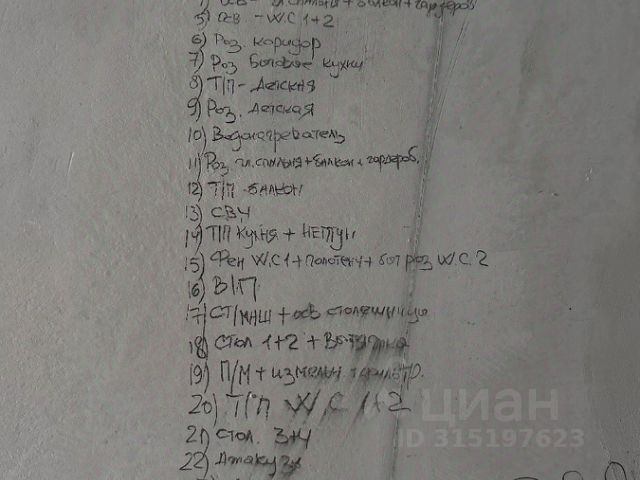 осв - гл.спальня + балкон + гардероб
5) осв - W.C 1+2
6) Роз. коридор
7) Роз бытовые кухни
8) Т/П - детская
9) Роз. детская
10) Водонагреватель
11) Роз гл.спальня + балкон + гардероб.
12) Т/П - балкон
13) СВЧ
14) Т/П кухня + Нептун
15) Фен W.C 1 + полотенц + роз W.C. 2
16) В/П
17) СТ/МАШ + осв столешницы
18) Стол 1+2 + Вытяжка
19) П/М + измельч.
20) Т/П W.C 1+2
21) Стол. 3+4
22)
циан
ID 315197623